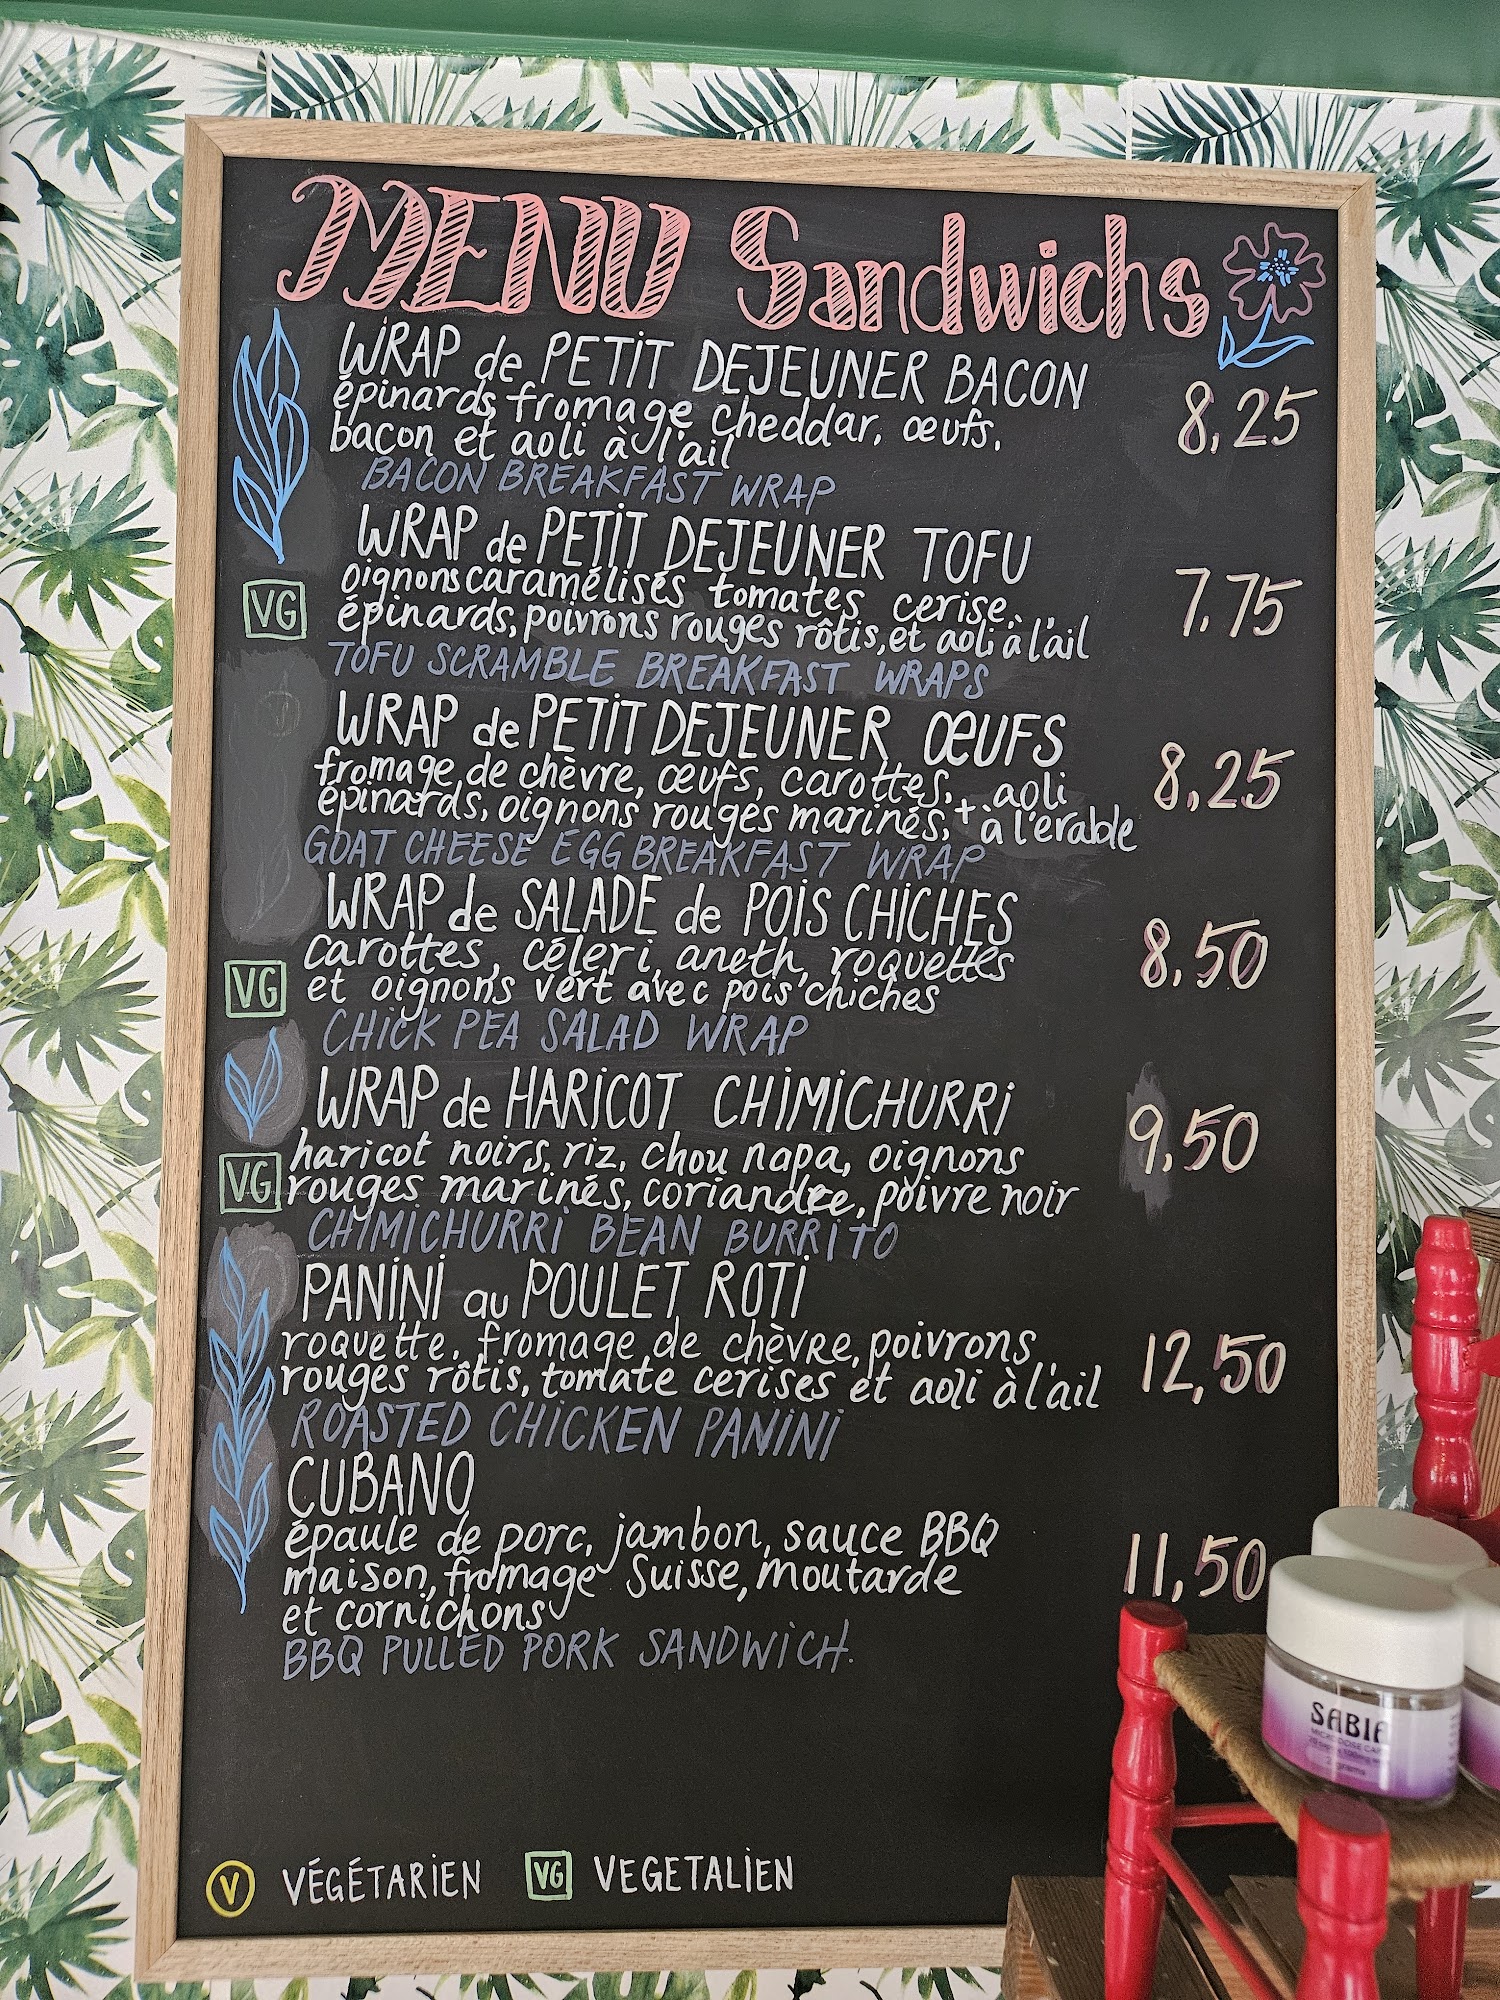 MENU Sandwichs
WRAP de PETIT DEJEUNER BACON
épinards, fromage cheddar, œufs,
bacon et aoli à l'ail
8,25
BACON BREAKFAST WRAP
WRAP de PETIT DEJEUNER TOFU
oignons caramélisés tomates cerise,
VG
épinards, poivrons rouges rôtis, et aoli à l'ail
7,75
TOFU SCRAMBLE BREAKFAST WRAPS
WRAP de PETIT DEJEUNER ŒUFS
fromage de chèvre, œufs, carottes, aoli
épinards, oignons rouges marinés, + à l'érable
8,25
GOAT CHEESE EGG BREAKFAST WRAP
WRAP de SALADE de POIS CHICHES
carottes, céleri, aneth, roquettes
VG
et oignons vert avec pois chiches
8,50
CHICK PEA SALAD WRAP
WRAP de HARICOT CHIMICHURRI
haricot noirs, riz, chou napa, oignons
VG
rouges marinés, coriandre, poivre noir
9,50
CHIMICHURRI BEAN BURRITO
PANINI au POULET ROTI
roquette, fromage de chèvre, poivrons
rouges rôtis, tomate cerises et aoli à l'ail
12,50
ROASTED CHICKEN PANINI
CUBANO
épaule de porc, jambon, sauce BBQ
maison, fromage Suisse, moutarde
et cornichons
11,50
BBQ PULLED PORK SANDWICH.
V VÉGÉTARIEN VG VEGETALIEN
SABIA